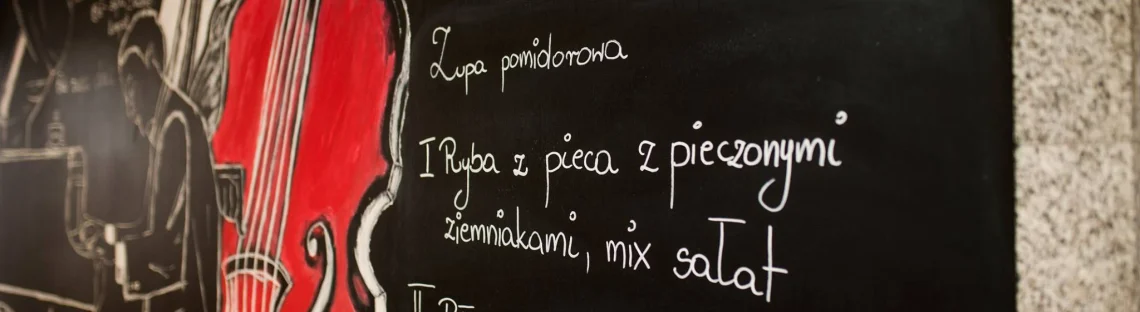 Zupa pomidorowa
I Ryba z pieca z pieczonymi
ziemniakami, mix sałat
II